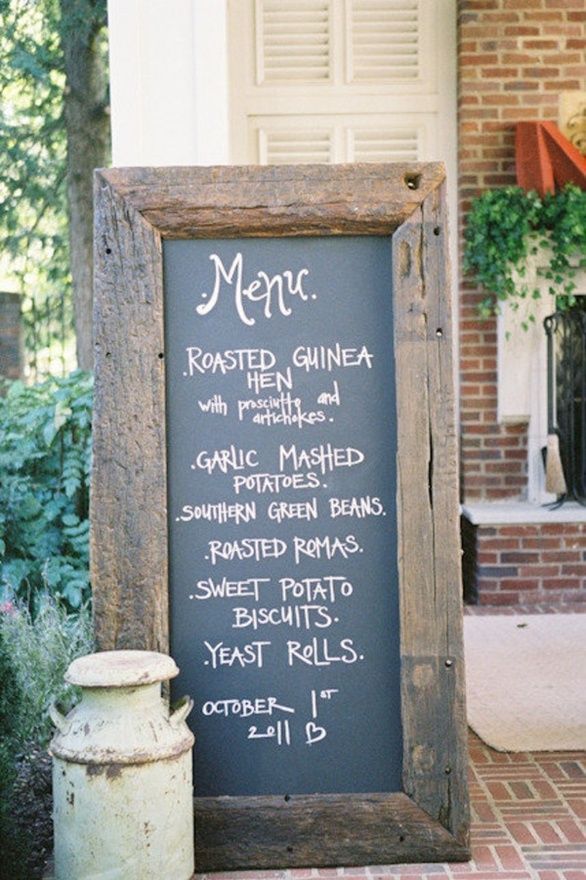 .Menu.
.ROASTED GUINEA
HEN
with prosciutto and
artichokes.
.GARLIC MASHED
POTATOES.
.SOUTHERN GREEN BEANS.
.ROASTED ROMAS.
.SWEET POTATO
BISCUITS.
.YEAST ROLLS.
OCTOBER 1ST
2011 ♡